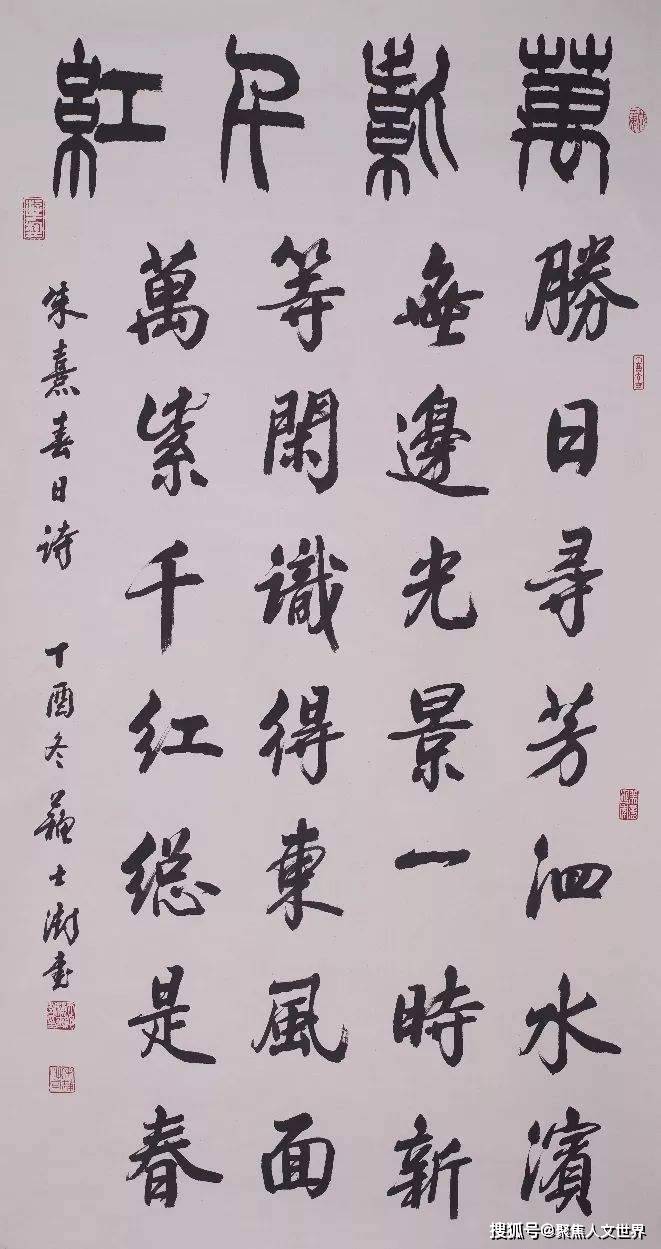 萬紫千紅
勝日尋芳泗水濱
無邊光景一時新
等閑識得東風面
萬紫千红總是春
朱熹春日诗 丁酉冬蘇士澍書
搜狐号@聚焦人文世界